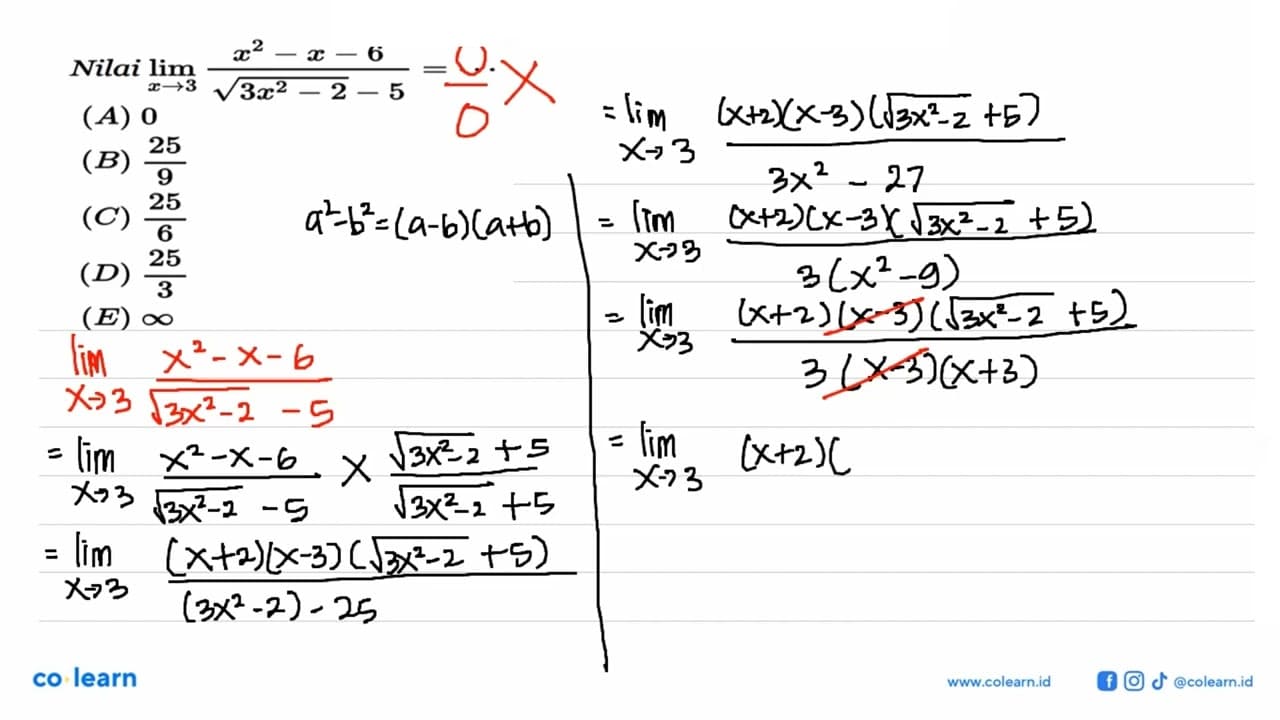 Nilai lim x→3 (x² − x − 6)/(√(3x² − 2) − 5) = 0/0 X
(A) 0
(B) 25/9
(C) 25/6
(D) 25/3
(E) ∞
a²-b²=(a-b)(a+b)
lim x→3 (x²-x-6)/(√(3x²-2) -5)
= lim x→3 (x²-x-6)/(√(3x²-2) -5) × (√(3x²-2) +5)/(√(3x²-2) +5)
= lim x→3 ((x+2)(x-3)(√(3x²-2) +5))/((3x²-2)-25)
= lim x→3 ((x+2)(x-3)(√(3x²-2) +5))/(3x² - 27)
= lim x→3 ((x+2)(x-3)(√(3x²-2) +5))/(3(x²-9))
= lim x→3 ((x+2)(x-3)(√(3x²-2) +5))/(3(x-3)(x+3))
= lim x→3 (x+2)(
co·learn
www.colearn.id
@colearn.id